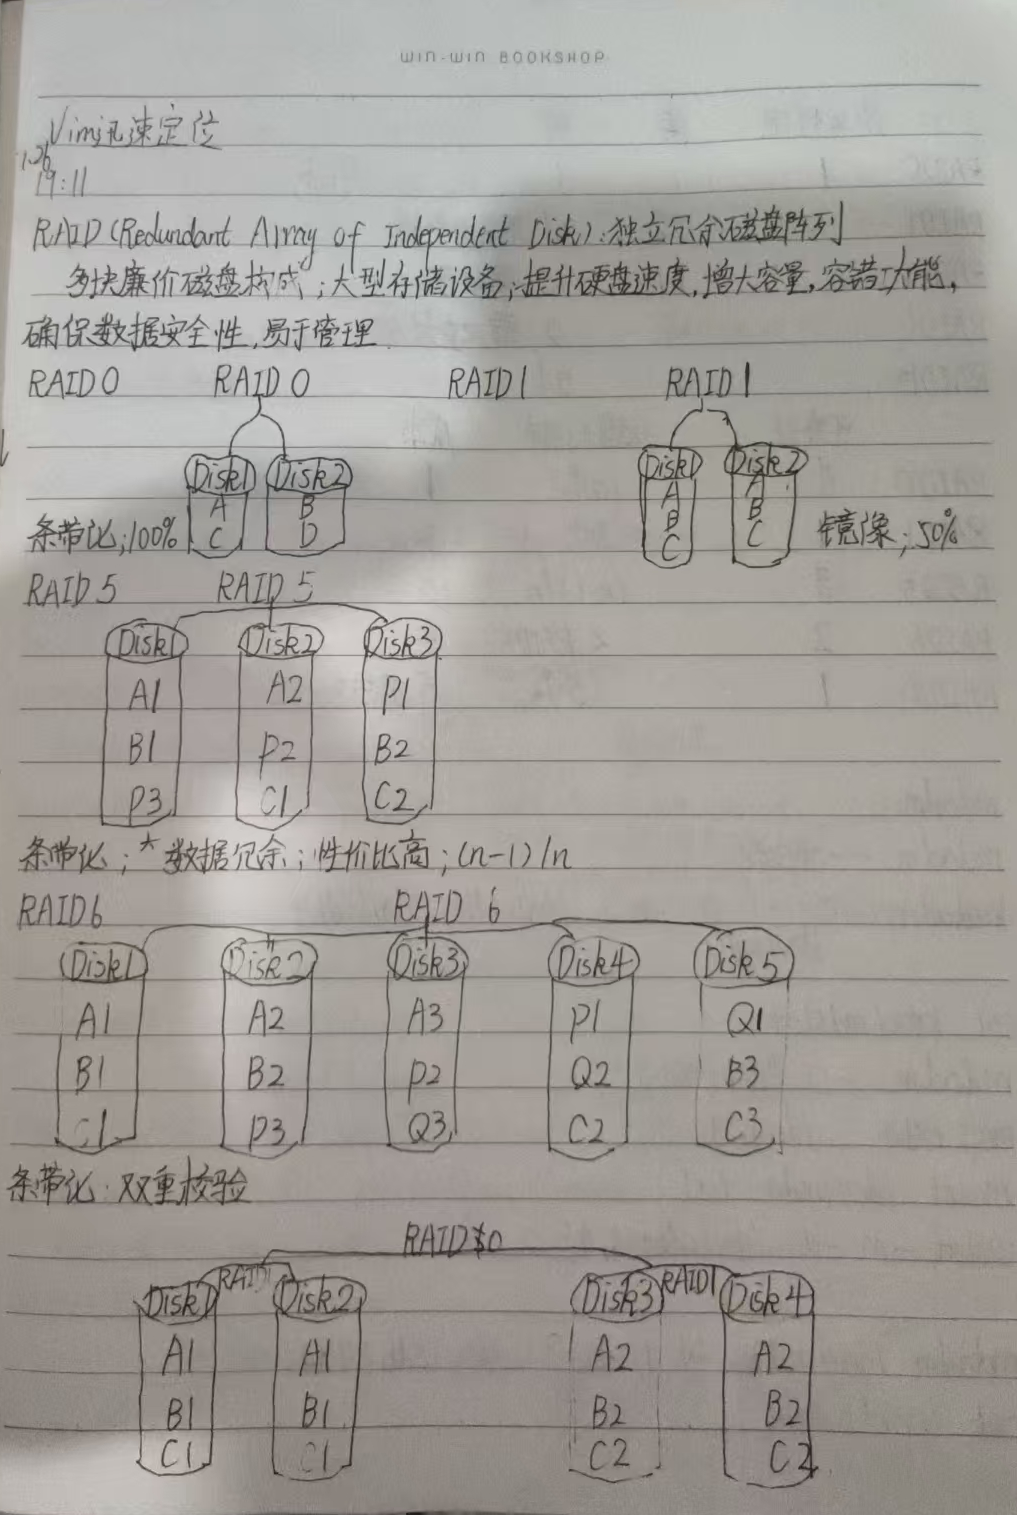 WIN-WIN BOOKSHOP
Vim迅速定位
1.26
19:11
RAID(Redundant Array of Independent Disk):独立冗余磁盘阵列
多块廉价磁盘构成;大型存储设备;提升硬盘速度,增大容量,容错功能,
确保数据安全性,易于管理
RAID0 RAID0 RAID1 RAID1
Disk1 Disk2 Disk1 Disk2
A B A A
C D B B
C C
条带化;100% 镜像;50%
RAID5 RAID5
Disk1 Disk2 Disk3
A1 A2 P1
B1 P2 B2
P3 C1 C2
条带化;*数据冗余;性价比高;(n-1)/n
RAID6 RAID 6
Disk1 Disk2 Disk3 Disk4 Disk5
A1 A2 A3 P1 Q1
B1 B2 P2 Q2 B3
C1 P3 Q3 C2 C3
条带化:双重校验
RAID 0
RAID1 RAID1
Disk1 Disk2 Disk3 Disk4
A1 A1 A2 A2
B1 B1 B2 B2
C1 C1 C2 C2